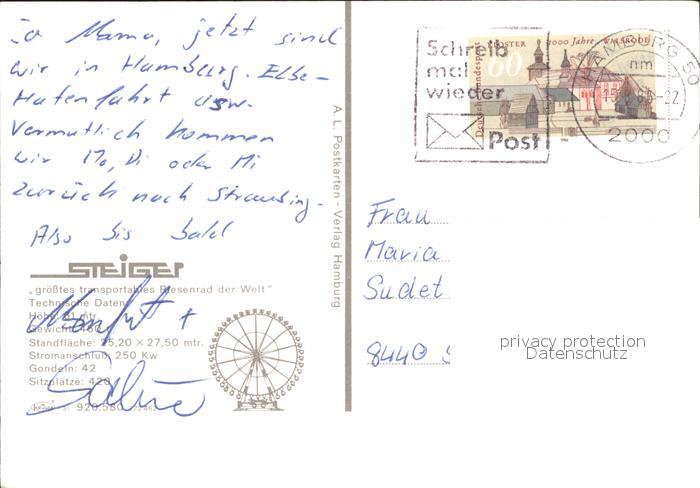 Mama, jetzt sind
wir in Hamburg. Elbe-
Hafenfahrt usw.
Vermutlich kommen
wir Mo, Di oder Mi
zurück nach Straubing.
Also bis bald
Manfred +
Sabine
STEIGER
„größtes transportables Riesenrad der Welt"
Technische Daten
Höhe: mtr.
Gewicht:
Standfläche: 25,20 × 27,50 mtr.
Stromanschluß: 250 Kw
Gondeln: 42
Sitzplätze: 420
920.580
A. L. Postkarten - Verlag Hamburg
Schreib
mal
wieder
Post
KLOSTER 1000 Jahre WALSRODE
60
Deutsche Bundespost
HAMBURG 50
nm
-22
2000
Frau
Maria
Sudet
8440
privacy protection
Datenschutz